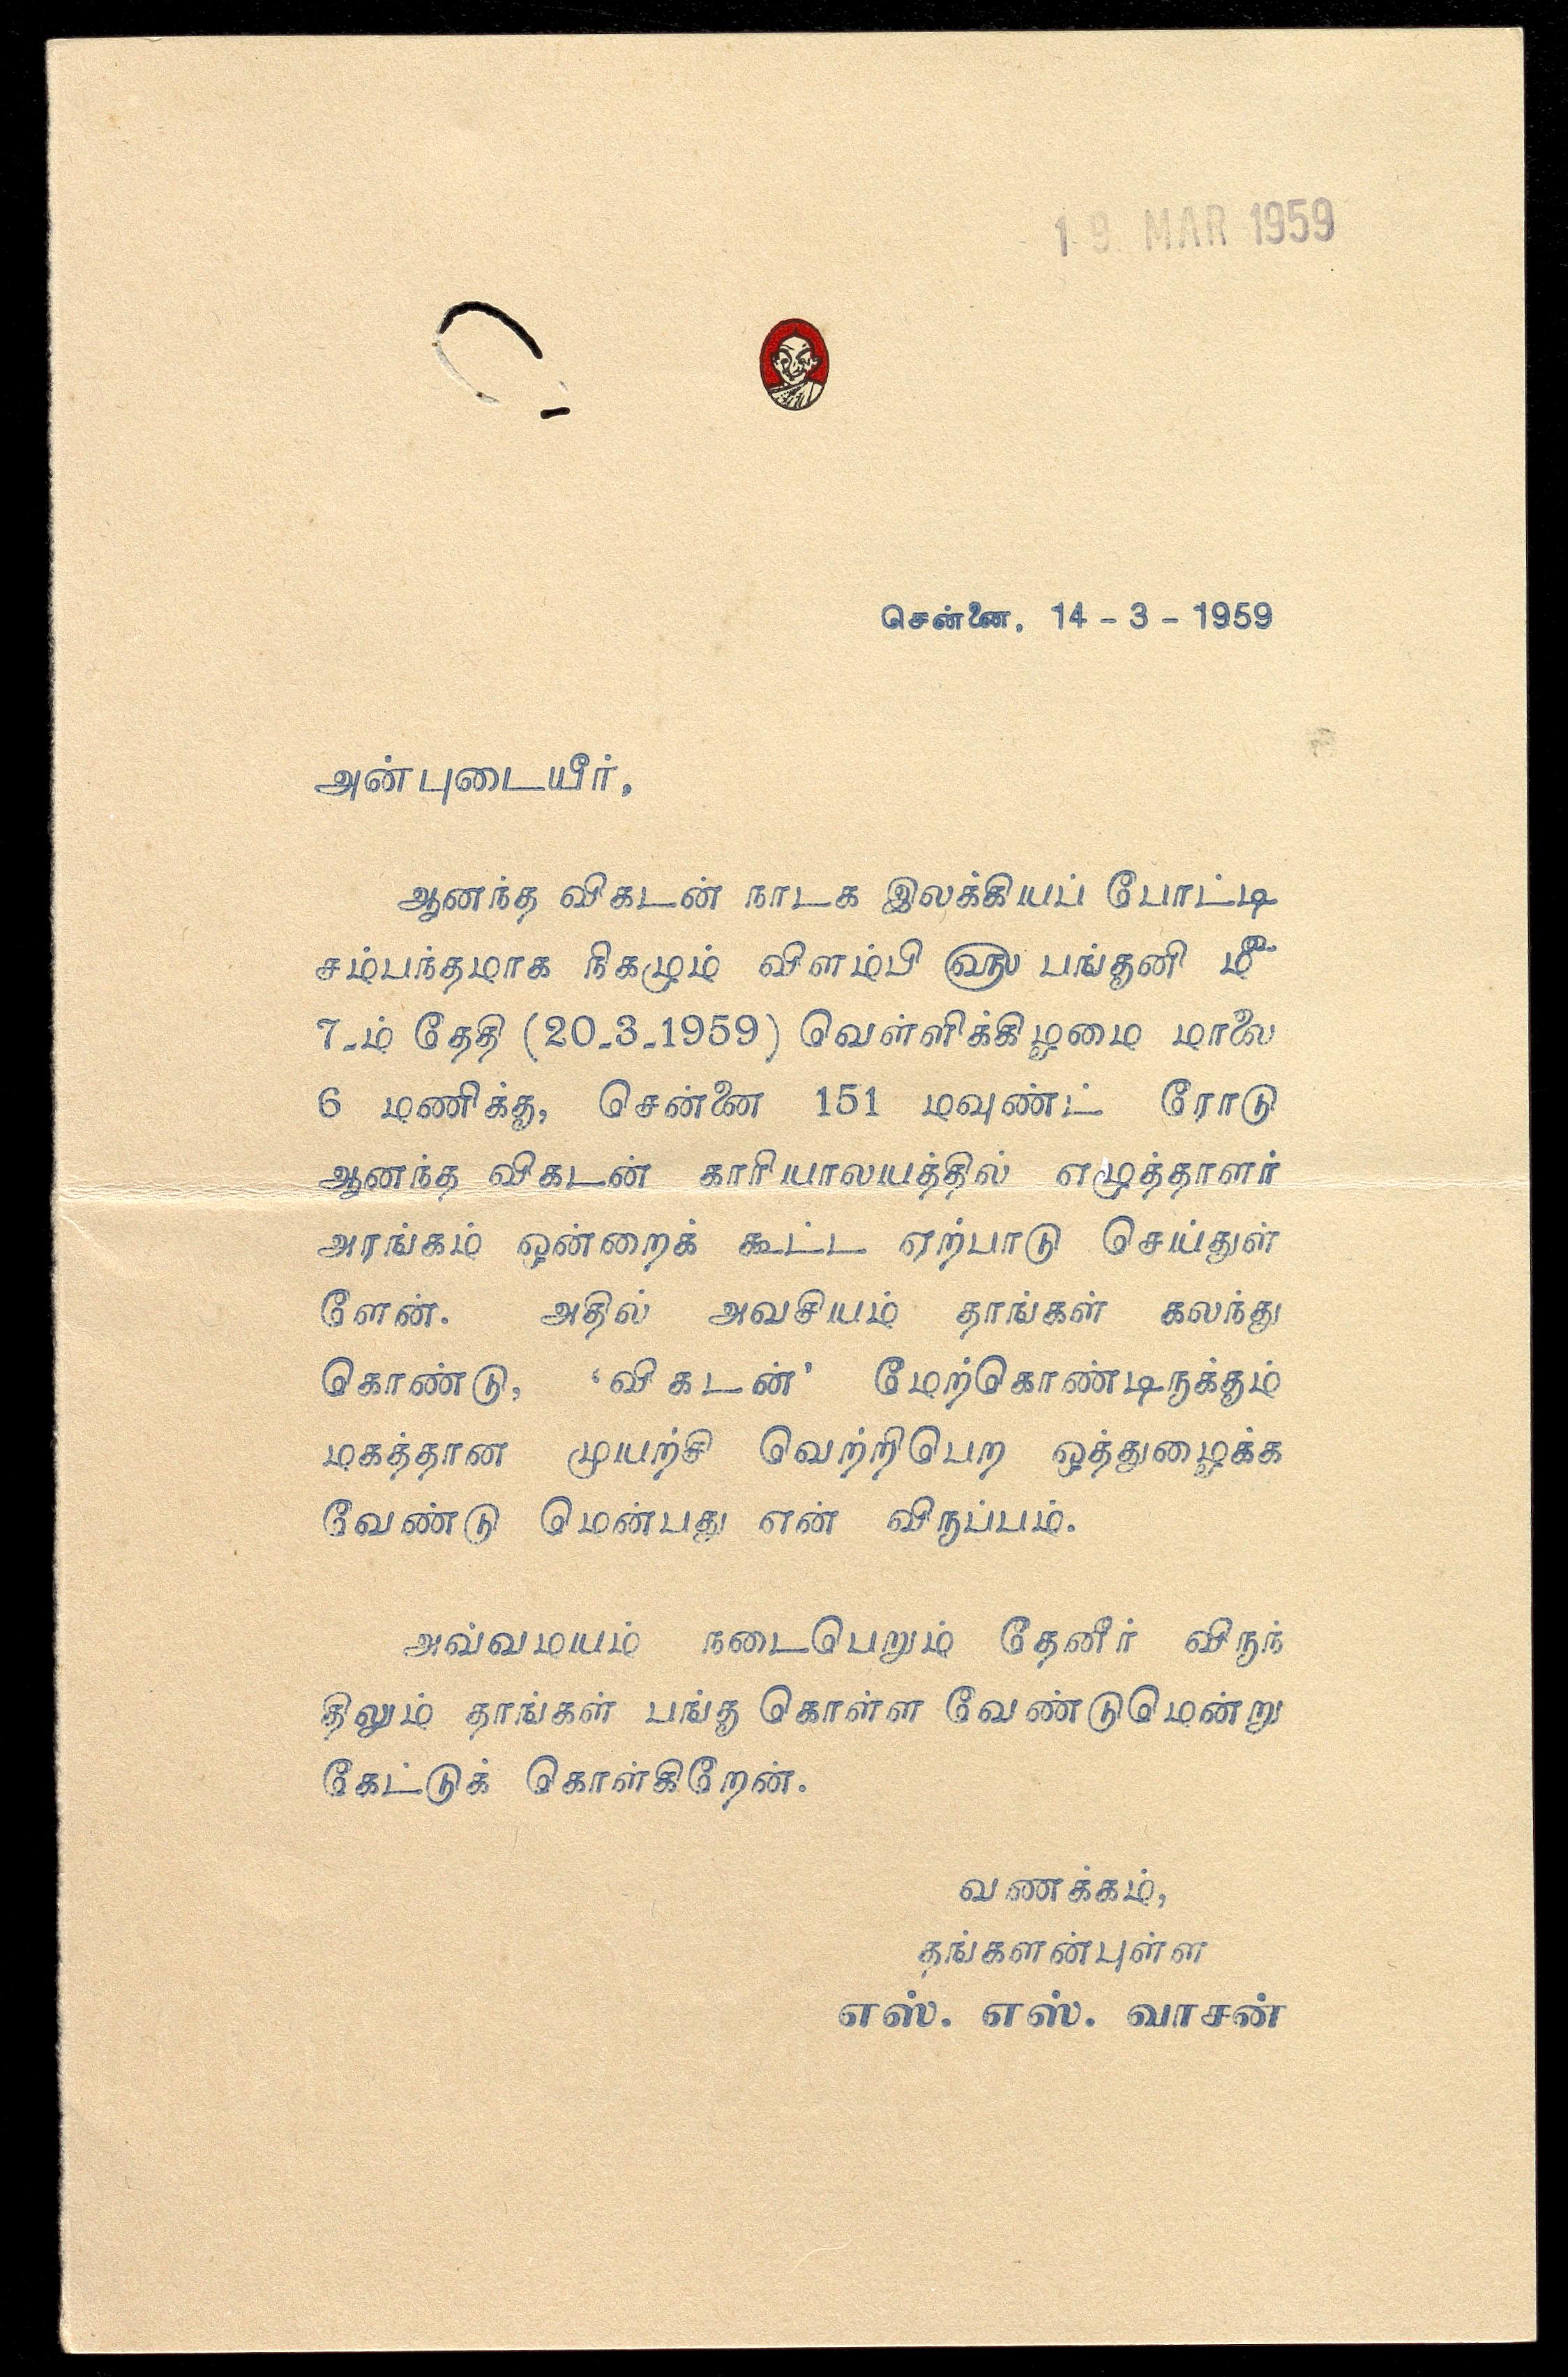 19 MAR 1959
சென்னை, 14 - 3 - 1959
அன்புடையீர்,
ஆனந்த விகடன் நாடக இலக்கியப் போட்டி
சம்பந்தமாக நிகழும் விளம்பி ௵ பங்குனி ௴
7-ம் தேதி (20-3-1959) வெள்ளிக்கிழமை மாலை
6 மணிக்கு, சென்னை 151 மவுண்ட் ரோடு
ஆனந்த விகடன் காரியாலயத்தில் எழுத்தாளர்
அரங்கம் ஒன்றைக் கூட்ட ஏற்பாடு செய்துள்
ளேன். அதில் அவசியம் தாங்கள் கலந்து
கொண்டு, ‘விகடன்’ மேற்கொண்டிருக்கும்
மகத்தான முயற்சி வெற்றிபெற ஒத்துழைக்க
வேண்டு மென்பது என் விருப்பம்.
அவ்வமயம் நடைபெறும் தேனீர் விருந்
திலும் தாங்கள் பங்கு கொள்ள வேண்டுமென்று
கேட்டுக் கொள்கிறேன்.
வணக்கம்,
தங்களன்புள்ள
எஸ். எஸ். வாசன்